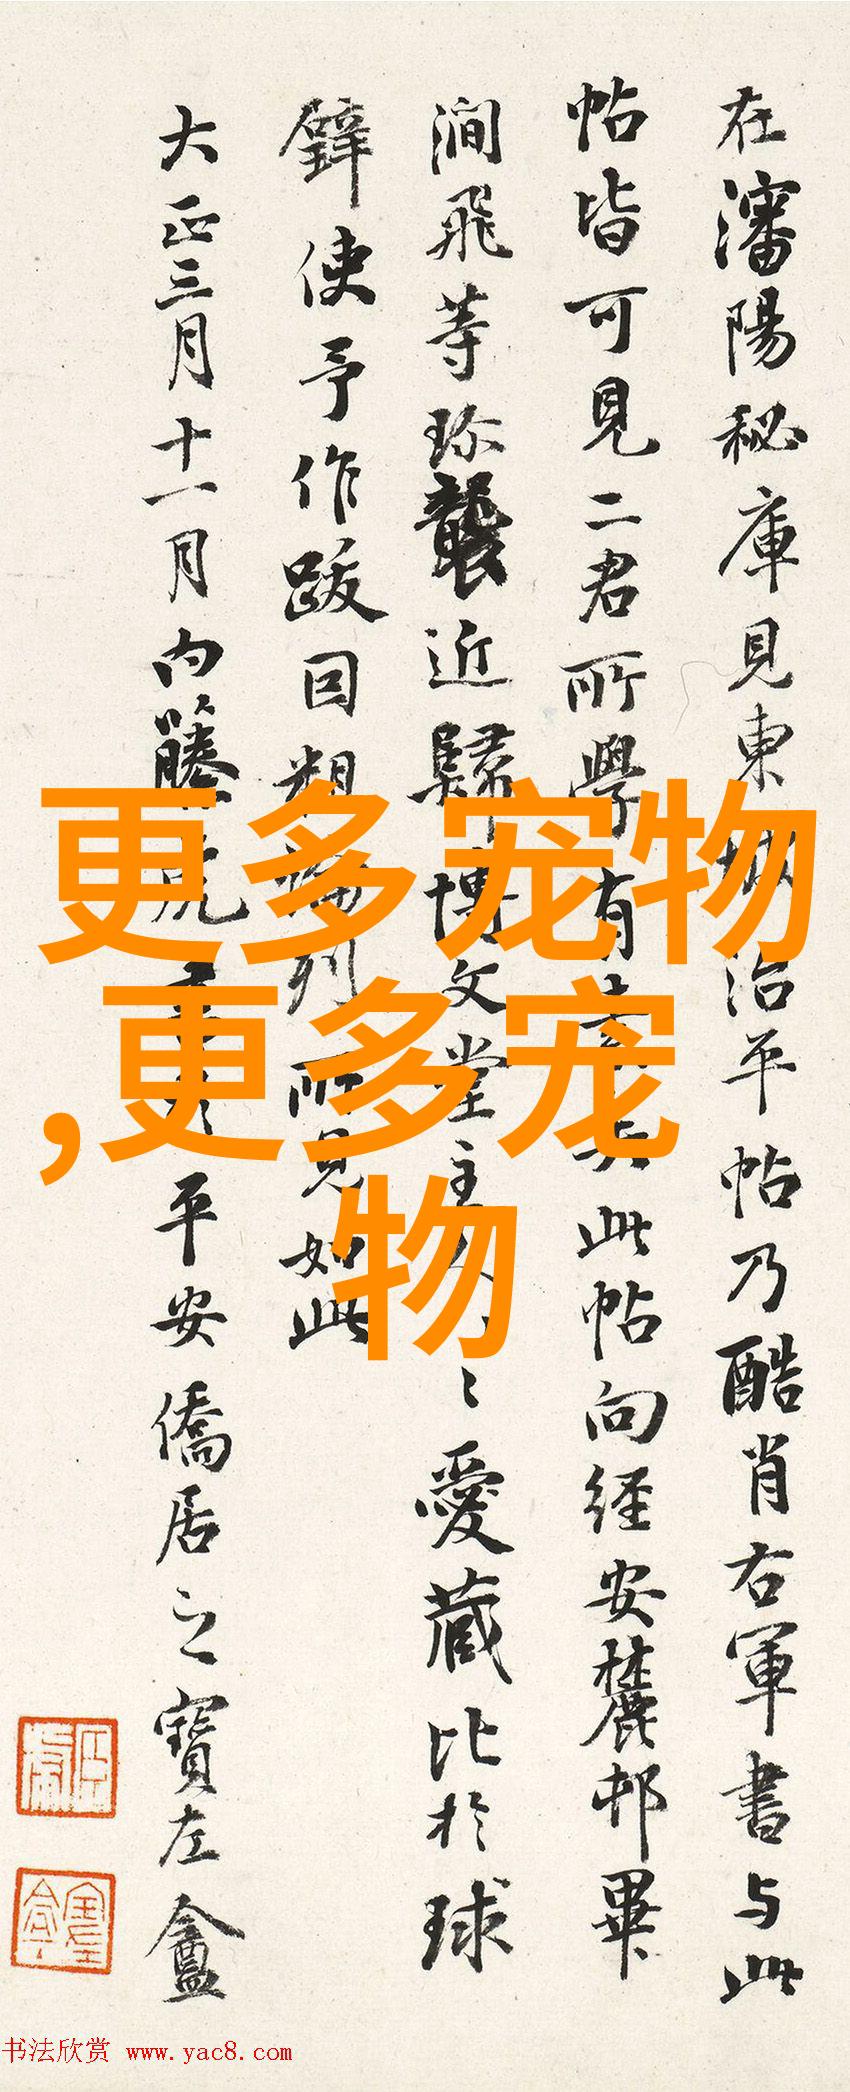 在瀋陽秘庫見東坡治平帖乃酷肖右軍書与此
帖皆可見二君所學有素与此帖向經安麓邨畢
澗飛等珍襲近歸博文堂主人〻愛蔵比於球
鐸使予作跋因粗論列所見如此
大正三月十一月内藤虎書於平安僑居之寶左盦
更多宠物
,更多宠
物
书法欣赏 www.yac8.com